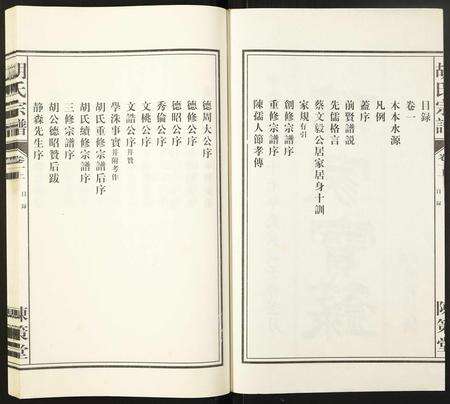 胡氏宗譜
卷一上
陳策堂
目録
卷一
木本水源
凡例
蓋序
前賢譜説
先儒格言
蔡文毅公居家居身十訓
家規有引
創修宗譜序
重修宗譜序
陳孺人節孝傳
德周大公序
德修公序
德昭公序
秀倫公序
文桃公序
文誥公序并贊
學洙事實并附考作
胡氏重修宗譜后序
胡氏續修宗譜序
三修宗譜序
胡公德昭贊后跋
靜森先生序
胡氏宗譜
卷一上
目録
陳策堂